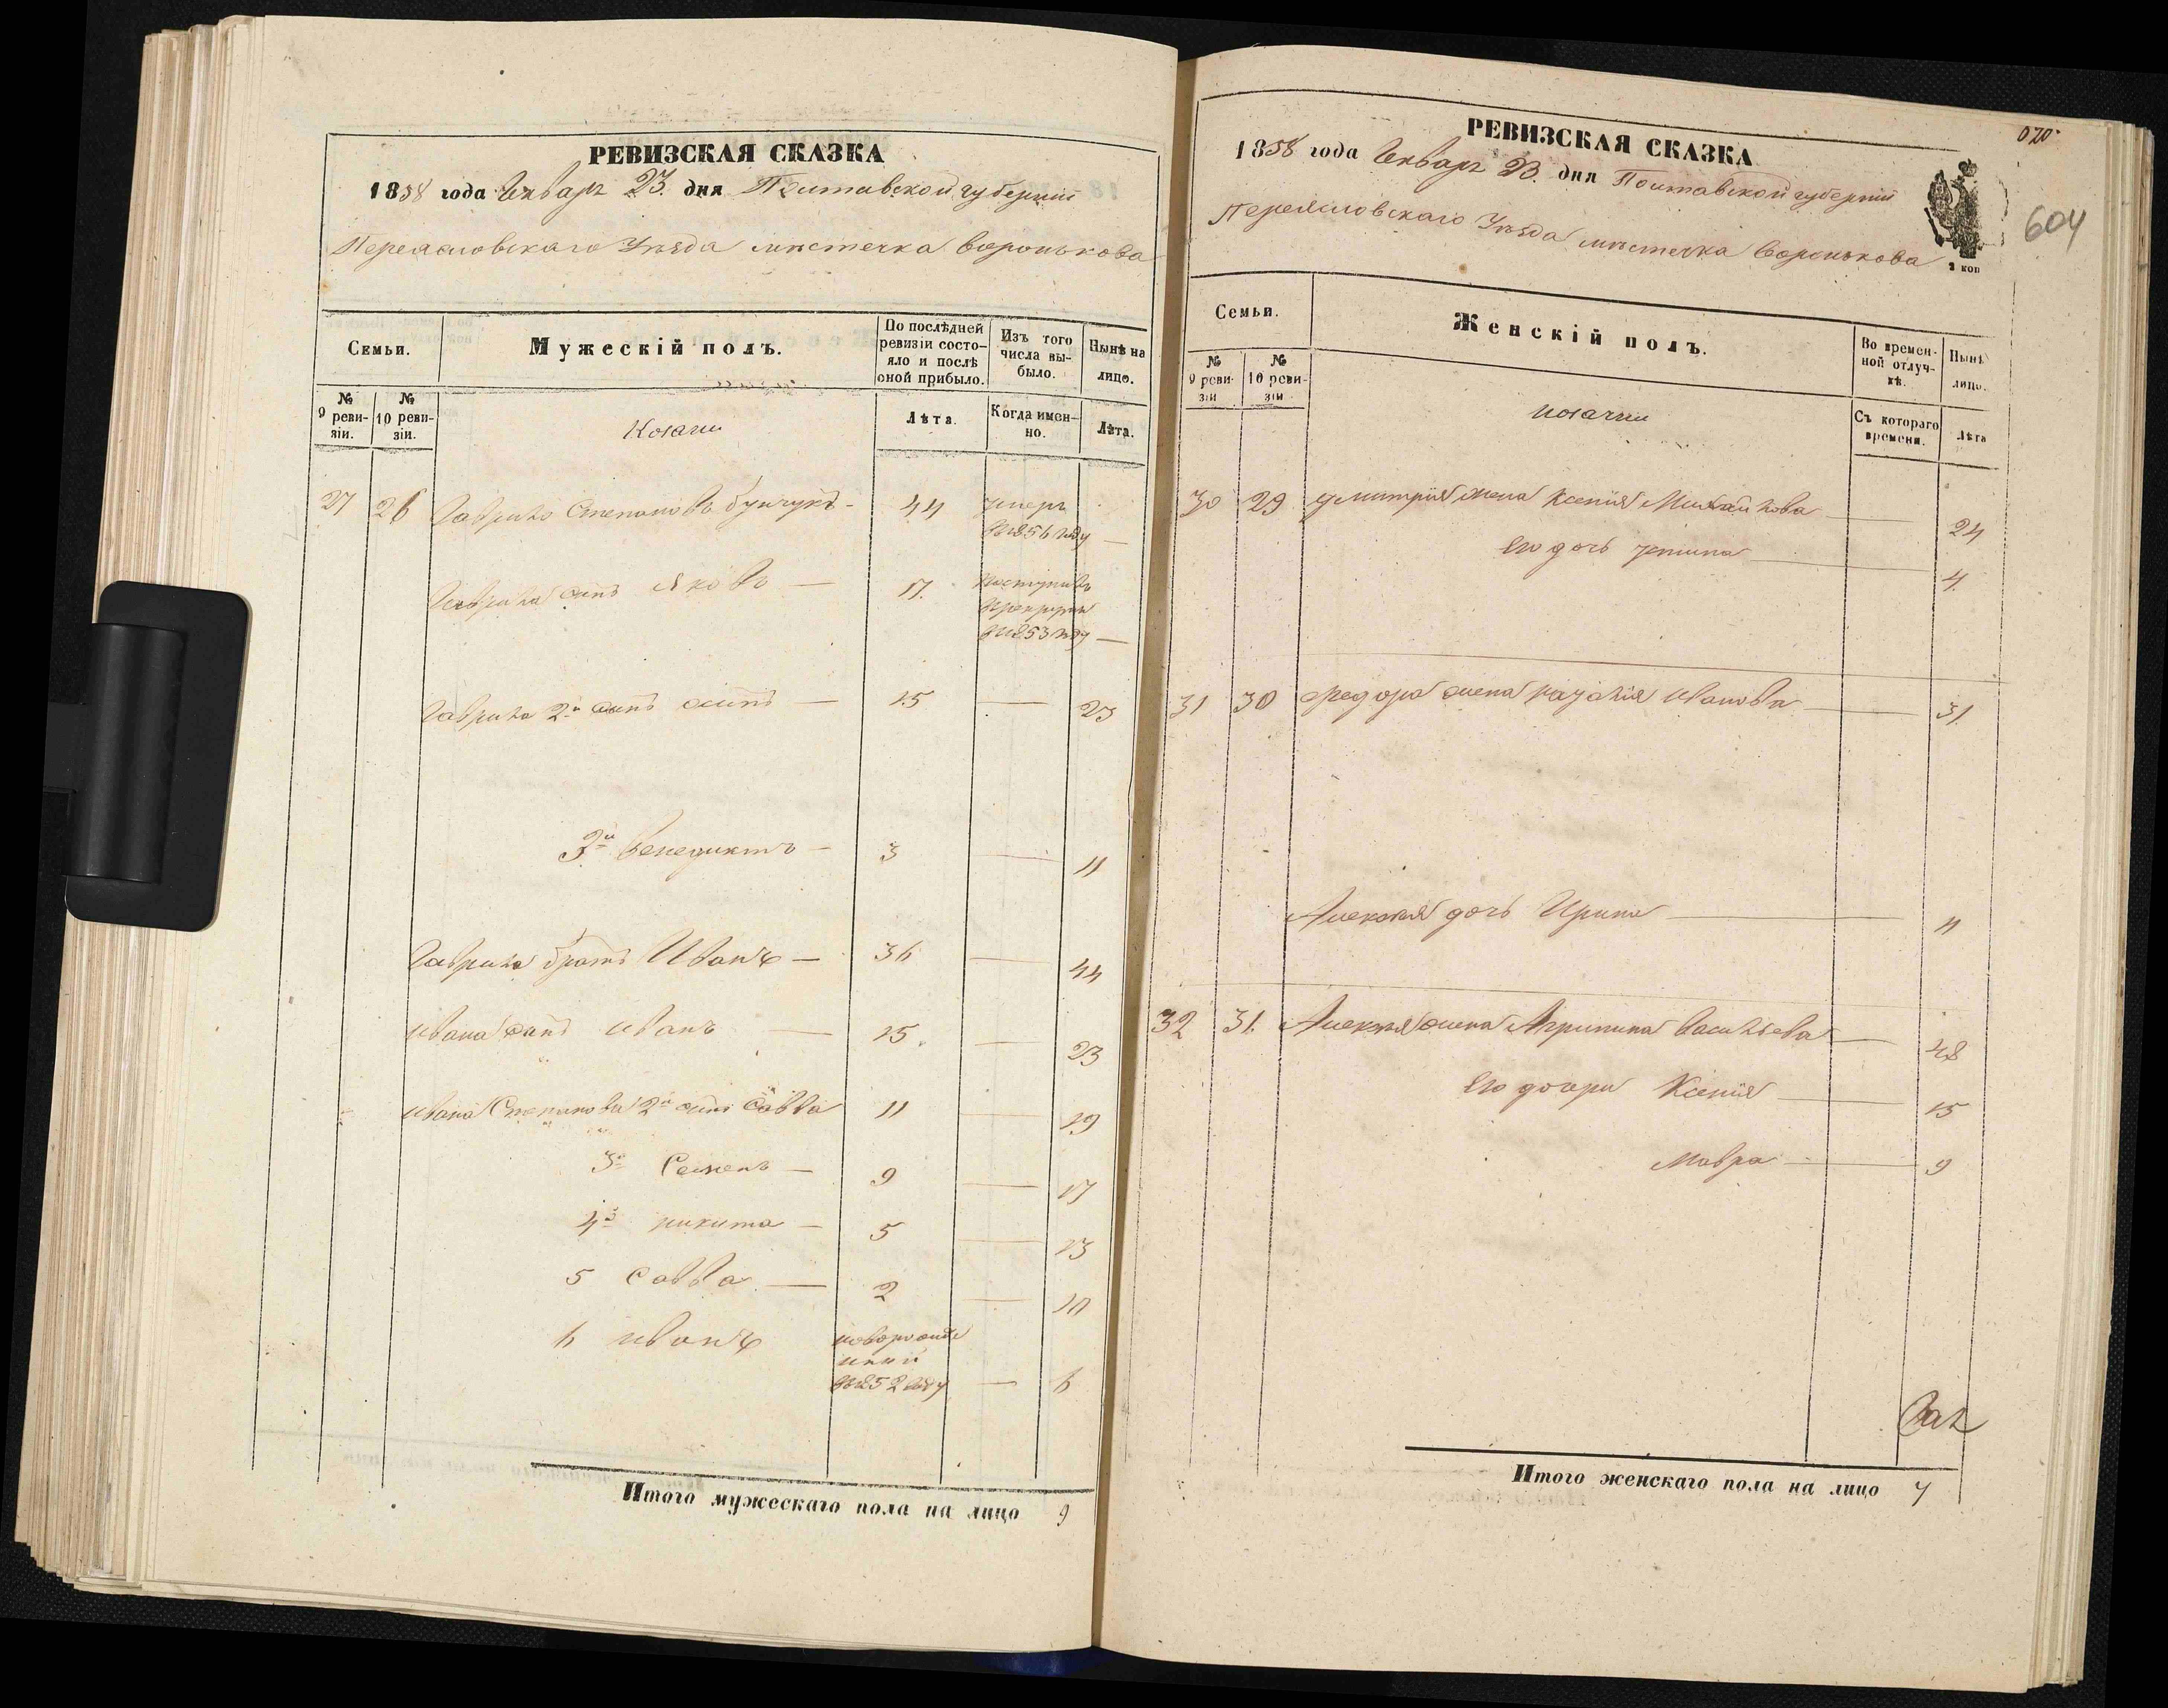 РЕВИЗСКАЯ СКАЗКА
1858 года Январь 23 дня Полтавской губернии
Переясловскаго Уѣзда мѣстечка Воронькова
Семьи.
Мужескій полъ.
По послѣдней ревизіи состояло и послѣ оной прибыло.
Изъ того числа выбыло.
Нынѣ на лицо.
№ 9 ревизіи.
№ 10 ревизіи.
Козаки
Лѣта.
Когда именно.
Лѣта.
27 26 Гаврило Степановъ Бунчукъ - 44 умеръ
въ 1856 году —
Гаврила сынъ Яковъ — 17.
въ 1853 году —
Гаврила 2й сынъ осипъ — 15 — 23
3й Венедиктъ — 3 — 11
Гаврила братъ Иванъ — 36 — 44
Ивана сынъ Иванъ — 15. — 23
Ивана Степанова 2й сынъ Савва 11 — 19
3й Семенъ — 9 — 17
4й никита — 5 — 13
5 Савва — 2 — 10
6 иванъ новорожде
нный
въ 1852 году — 6
Итого мужескаго пола на лицо 9
РЕВИЗСКАЯ СКАЗКА
1858 года Январь 23. дня Полтавской губернии
Переясловскаго Уѣзда мѣстечка Воронькова
070
604
2 коп
Семьи.
Женскій полъ.
Во временной отлучкѣ.
Нынѣ лицо.
№ 9 ревизіи
№ 10 ревизіи
козачки
Съ котораго времени.
Лѣта
30 29 Дмитрія жена Ксенія Михайлова — 24
Его дочь — 4.
31 30 Федора жена Иванова — 31.
Алексѣя дочь Ирина — 11
32 31. Алексѣя жена Агрипина Васильева — 48
Его дочери Ксенія — 15
Мавра — 9
Итого женскаго пола на лицо 7